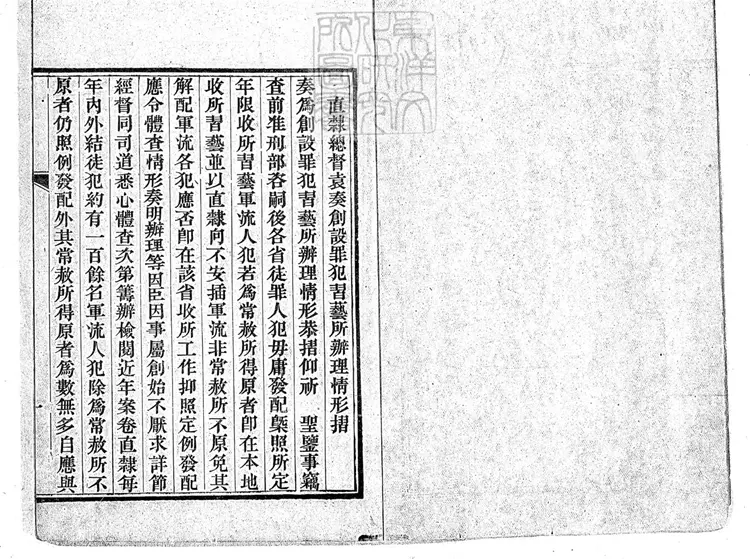 直隸總督袁奏創設罪犯習藝所辦理情形摺
奏爲創設罪犯習藝所辦理情形恭摺仰祈 聖鑒事竊
查前准刑部咨嗣後各省徒罪人犯毋庸發配槩照所定
年限收所習藝軍流人犯若爲常赦所得原者卽在本地
收所習藝並以直隸向不安插軍流非常赦所不原免其
解配軍流各犯應否卽在該省收所工作抑照定例發配
應令體查情形奏明辦理等因臣因事屬創始不厭求詳節
經督同司道悉心體查次第籌辦檢閱近年案卷直隸每
年內外結徒犯約有一百餘名軍流人犯除爲常赦所不
原者仍照例發配外其常赦所得原者爲數無多自應與
一